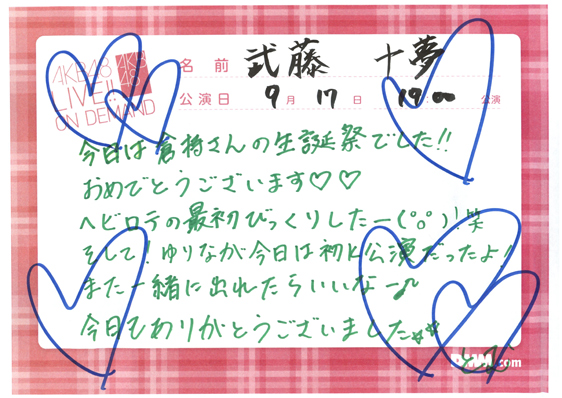 AKB48
LIVE!!
ON DEMAND
AKB
48
名前 武藤 十夢
公演日 9月 17日 19:00 公演
今日は倉持さんの生誕祭でした!!
おめでとうございます♡♡
ヘビロテの最初びっくりしたー(°o°)!笑
そして!ゆりなが今日は初L公演だったよ!
また一緒に出れたらいいなー♪
今日もありがとうございました
DMM.com